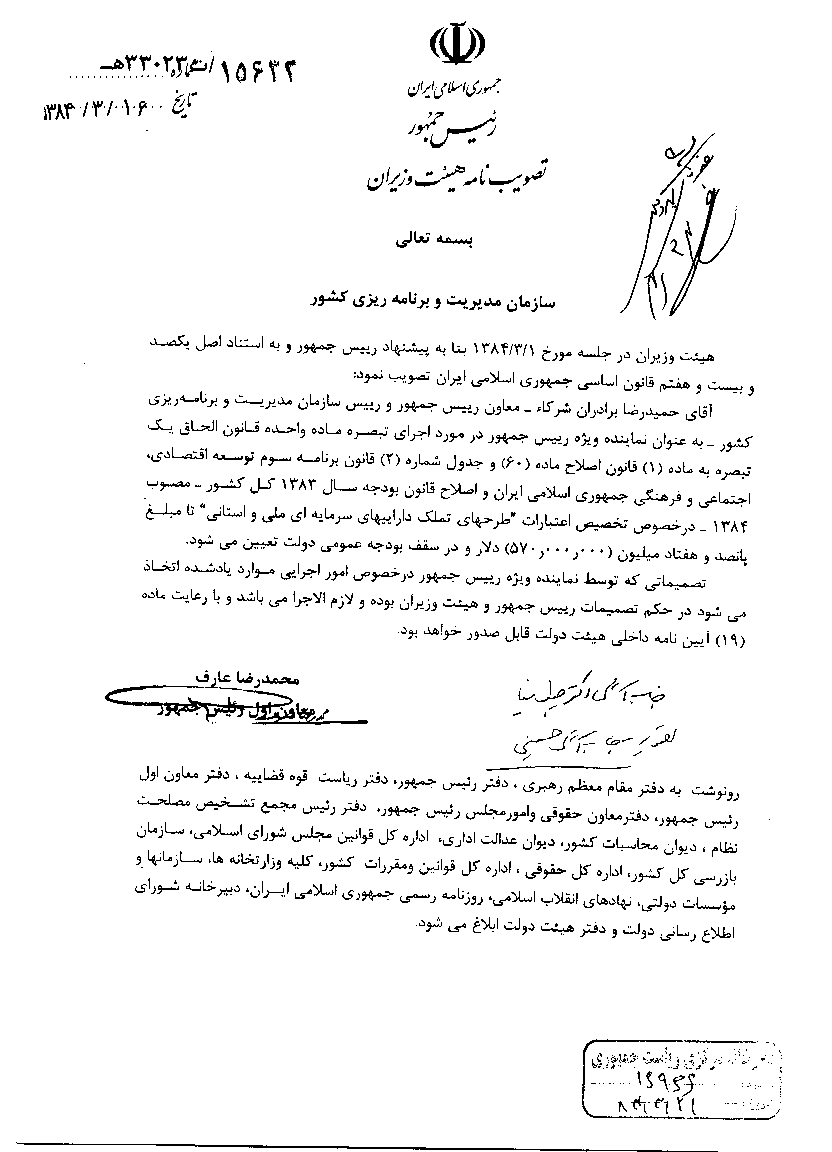 ۱۵۶۳۲/ت۳۳۰۲۳هـ
تاریخ ۱۳۸۴/۳/۰۱
جمهوری اسلامی ایران
رئیس جمهور
تصویب نامه هیئت وزیران
بسمه تعالی
سازمان مدیریت و برنامه ریزی کشور
هیئت وزیران در جلسه مورخ ۱۳۸۴/۳/۱ بنا به پیشنهاد رییس جمهور و به استناد اصل یکصد
و بیست و هفتم قانون اساسی جمهوری اسلامی ایران تصویب نمود:
آقای حمیدرضا برادران شرکاء ـ معاون رییس جمهور و رییس سازمان مدیریت و برنامه‌ریزی
کشور ـ به عنوان نماینده ویژه رییس جمهور در مورد اجرای تبصره ماده واحده قانون الحاق یک
تبصره به ماده (۱) قانون اصلاح ماده (۶۰) و جدول شماره (۲) قانون برنامه سوم توسعه اقتصادی،
اجتماعی و فرهنگی جمهوری اسلامی ایران و اصلاح قانون بودجه سال ۱۳۸۳ کل کشور ـ مصوب
۱۳۸۴ ـ درخصوص تخصیص اعتبارات "طرحهای تملک داراییهای سرمایه ای ملی و استانی" تا مبلغ
پانصد و هفتاد میلیون (۵۷۰٫۰۰۰٫۰۰۰) دلار و در سقف بودجه عمومی دولت تعیین می شود.
تصمیماتی که توسط نماینده ویژه رییس جمهور درخصوص امور اجرایی موارد یادشده اتخاذ
می شود در حکم تصمیمات رییس جمهور و هیئت وزیران بوده و لازم الاجرا می باشد و با رعایت ماده
(۱۹) آیین نامه داخلی هیئت دولت قابل صدور خواهد بود.
محمدرضا عارف
معاون اول رئیس جمهور
رونوشت به دفتر مقام معظم رهبری ، دفتر رئیس جمهور، دفتر ریاست قوه قضاییه ، دفتر معاون اول
رئیس جمهور، دفترمعاون حقوقی وامورمجلس رئیس جمهور، دفتر رئیس مجمع تشخیص مصلحت
نظام ، دیوان محاسبات کشور، دیوان عدالت اداری، اداره کل قوانین مجلس شورای اسلامی، سازمان
بازرسی کل کشور، اداره کل حقوقی ، اداره کل قوانین ومقررات کشور، کلیه وزارتخانه ها، سازمانها و
مؤسسات دولتی، نهادهای انقلاب اسلامی، روزنامه رسمی جمهوری اسلامی ایران، دبیرخانه شورای
اطلاع رسانی دولت و دفتر هیئت دولت ابلاغ می شود.